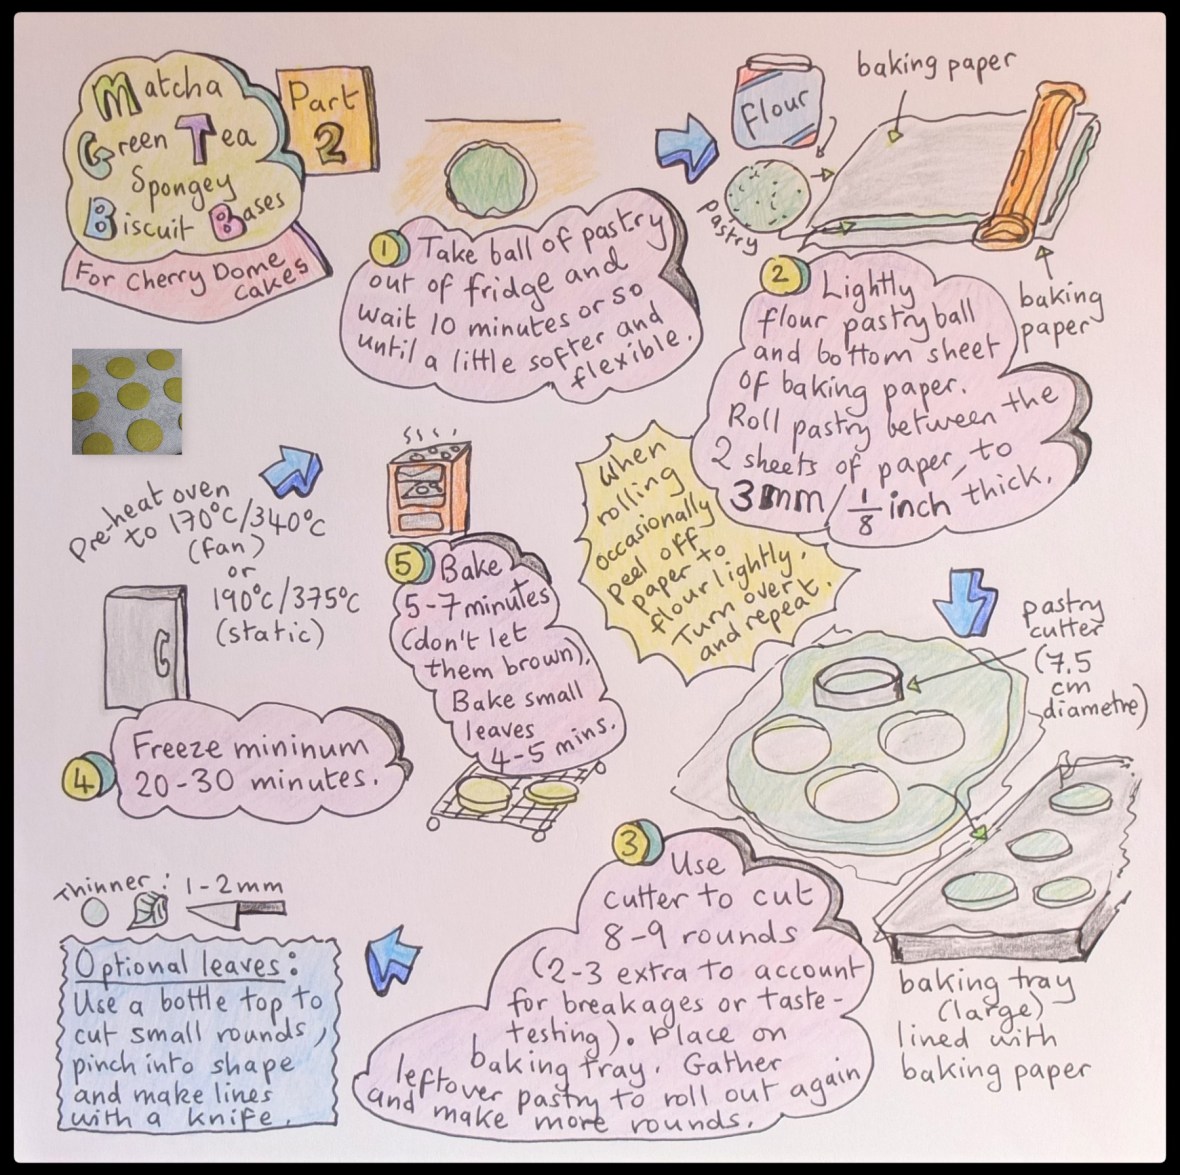 Matcha
Green Tea
Spongey
Biscuit Bases
For Cherry Dome
Cakes
Part
2
1 Take ball of pastry
out of fridge and
wait 10 minutes or so
until a little softer and
flexible.
Flour
pastry
baking paper
baking
paper
2 Lightly
flour pastry ball
and bottom sheet
of baking paper.
Roll pastry between the
2 sheets of paper, to
3mm/1/8 inch thick.
When
rolling
occasionally
peel off
paper to
flour lightly.
Turn over
and repeat.
pastry
cutter
(7.5
cm
diametre)
3 Use
cutter to cut
8-9 rounds
(2-3 extra to account
for breakages or taste-
testing). Place on
baking tray. Gather
leftover pastry to roll out again
and make more rounds.
baking tray
(large)
lined with
baking paper
Thinner: 1-2mm
Optional leaves:
Use a bottle top to
cut small rounds,
pinch into shape
and make lines
with a knife.
4 Freeze mininum
20-30 minutes.
Pre-heat oven
to 170°c/340°c
(fan)
or
190°c/375°c
(static)
5 Bake
5-7 minutes
(don't let
them brown).
Bake small
leaves
4-5 mins.